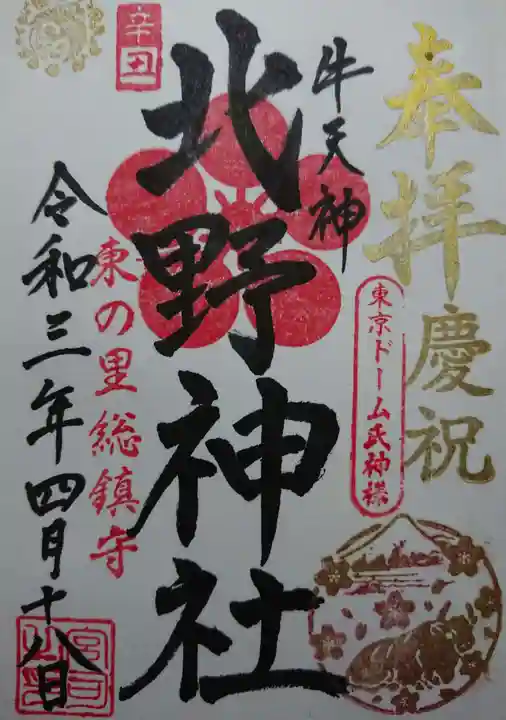 奉拝慶祝
東京ドーム氏神様
牛天神
北野神社
辛丑
東の里総鎮守
令和三年四月十八日